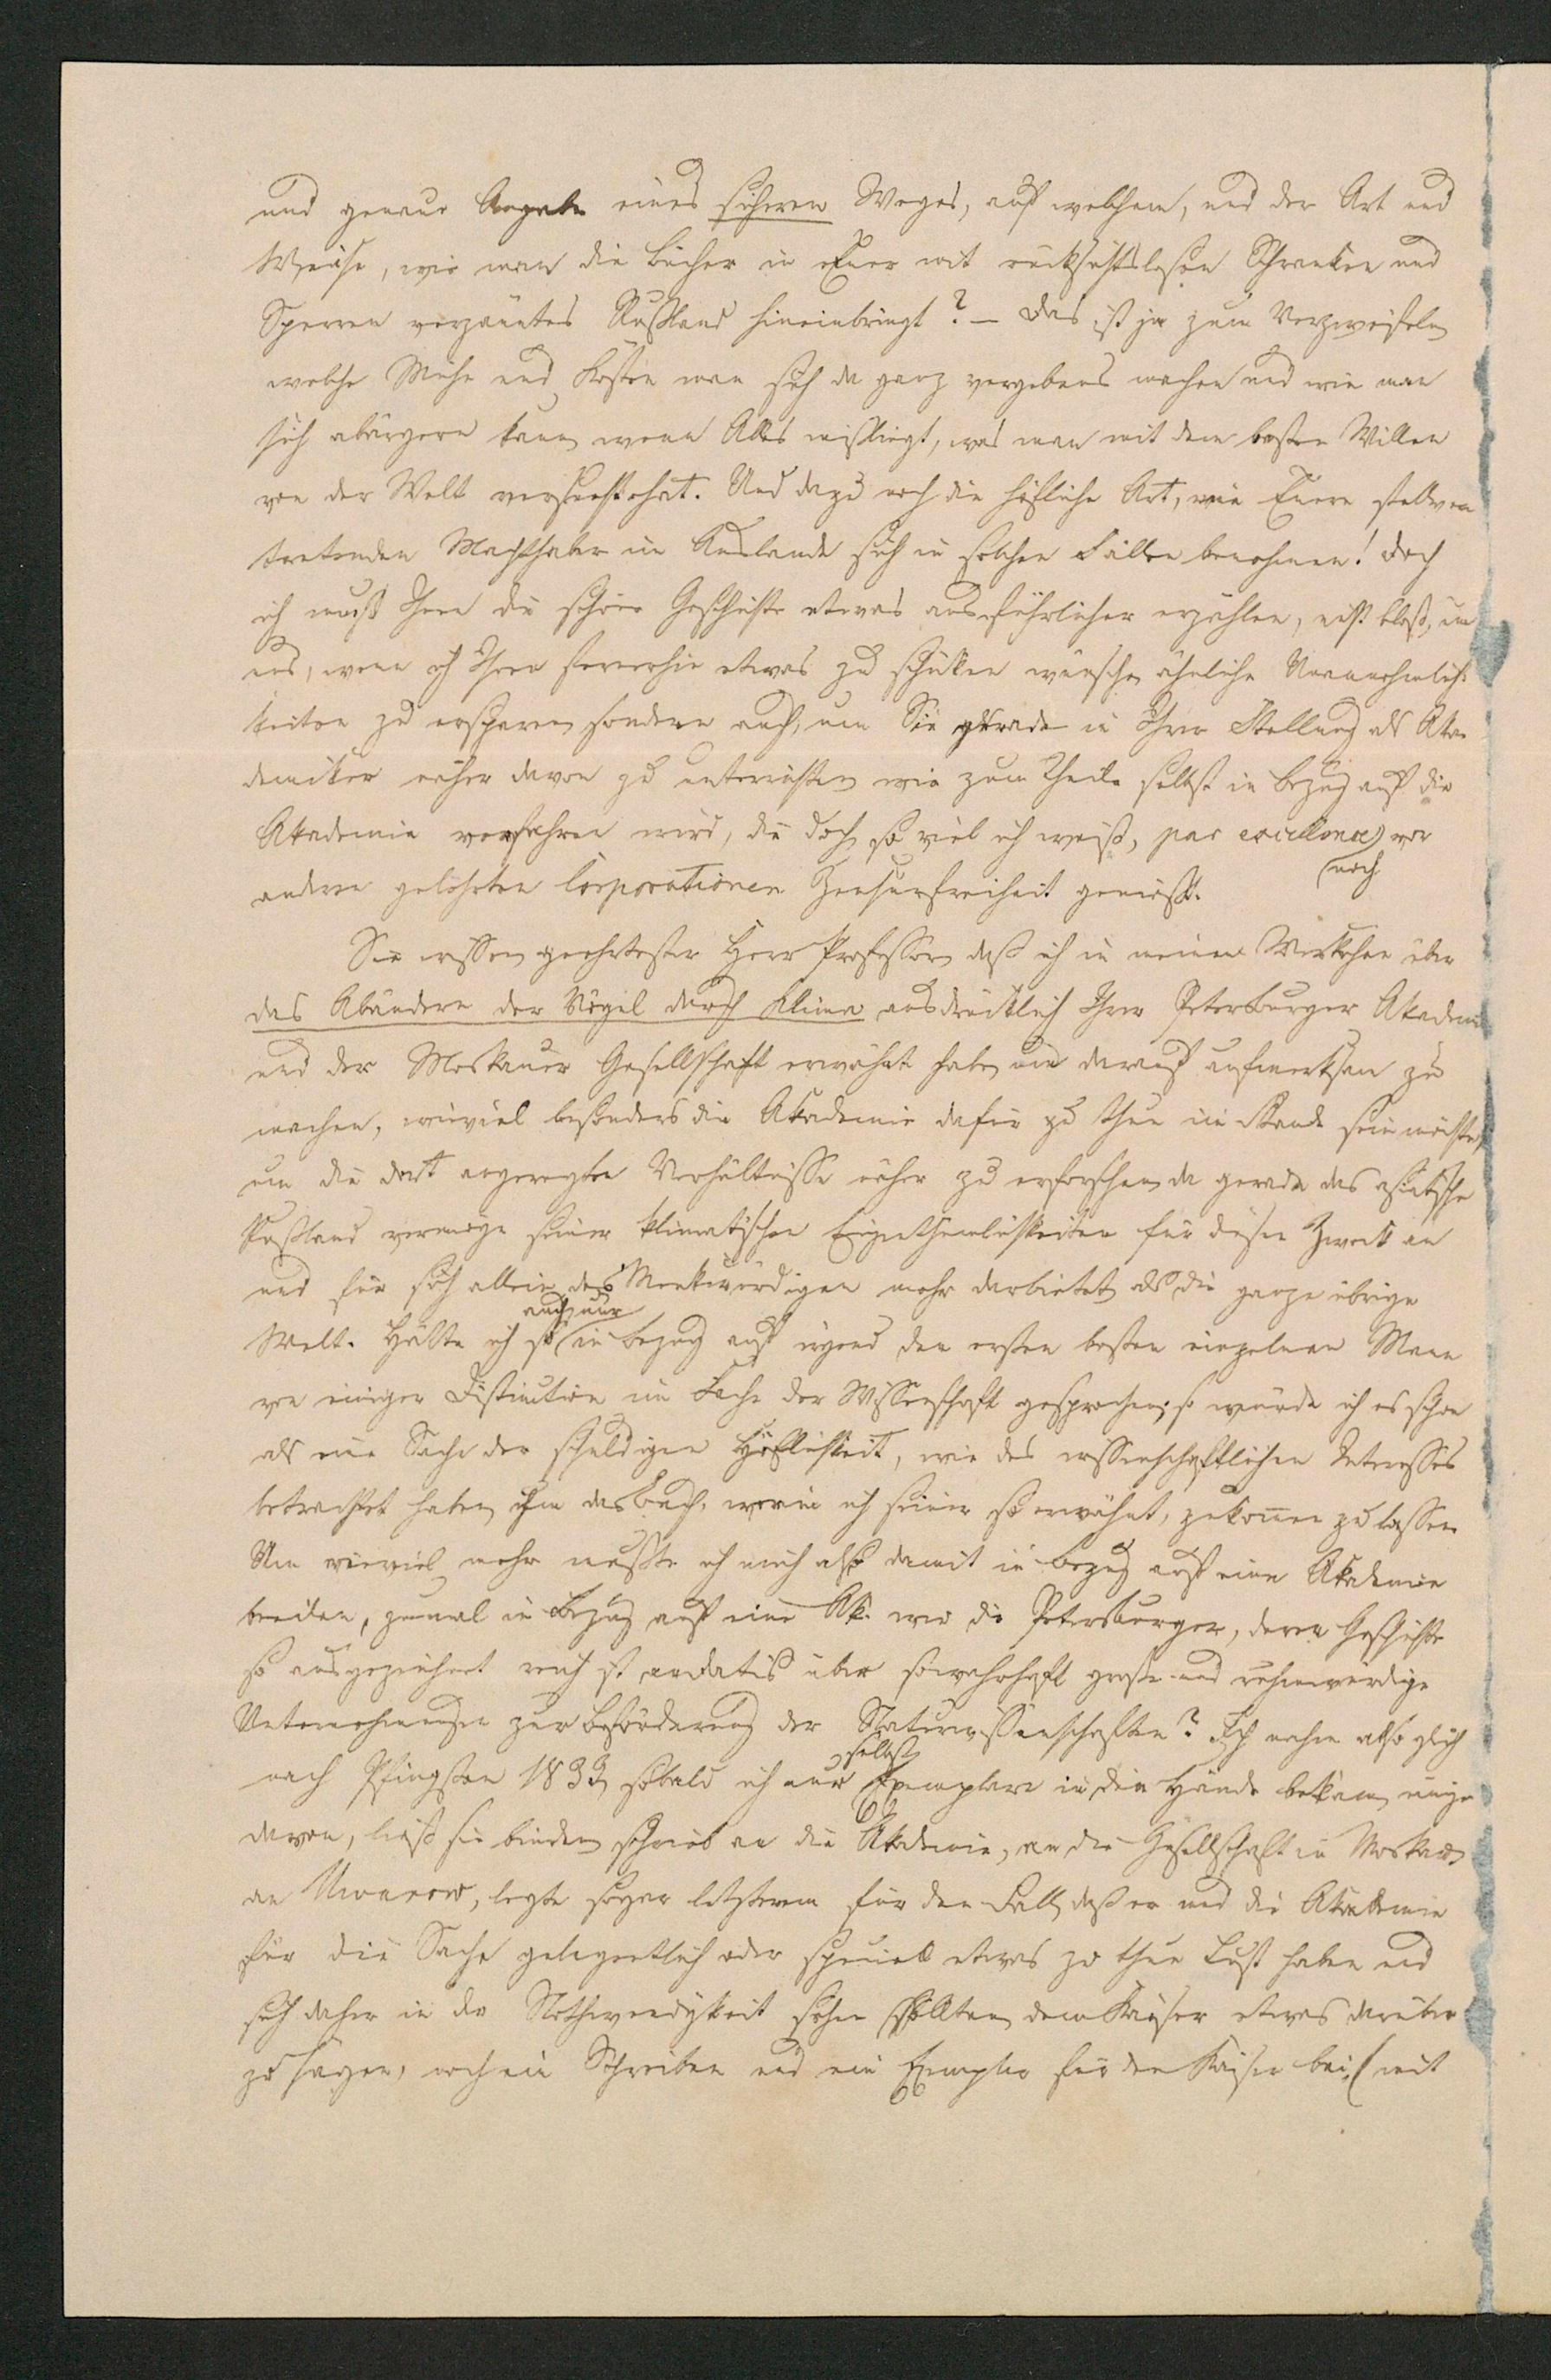 und genaue Angabe eines sicheren Weges, auf welchem, und der Art und
Weise, wie man die Bücher in Euer mit rücksichtslosen Schranken und
Sperren verzäuntes Rußland hineinbringt? – Das ist ja zum Verzweifeln
welche Mühe und Kosten man sich da ganz vergebens machen und wie man
sich abärgern kann, wenn Alles misslingt, was man mit dem besten Willen
von der Welt versucht hat. Und dazu noch die höfliche Art, wie Euere stellver
tretenden Machthaber im Auslande sich in solchen Fällen benehmen! Doch
ich muß Ihnen die schöne Geschichte etwas ausführlicher erzählen, nicht bloß, um
uns, wenn ich Ihnen fernerhin etwas zu schicken wünsche, ähnliche Unannehmlich-
keiten zu ersparen, sondern auch, um Sie gerade in Ihrer Stellung als Aka-
demiker näher davon zu unterrichten, wie zum Theile selbst in Bezug auf die
Akademie verfahren wird, die doch, so viel ich weiß, par excellence, vor
noch
andern gelehrten Corporationen Zensurfreiheit genießt.
Sie wissen, geehrtester Herr Professor, daß ich in meinem Werkchen über
das Abändern der Vögel durch Klima ausdrücklich Ihrer Petersburger Akademie
und der Moskauer Gesellschaft erwähnt habe, um darauf aufmerksam zu
machen, wieviel besonders die Akademie dafür zu thun im Stande sein möchte,
um die dort angeregten Verhältnisse näher zu erforschen, da gerade das asiatische
Rußland vermöge seiner klimatischen Eigenthümlichkeiten für diesen Zweck an
und für sich allein des Merkwürdigen mehr darbietet, als die ganze übrige
auch nur
Welt. Hätte ich so in Bezug auf irgend den ersten besten einzelnen Mann
von einiger Distinction im Fache der Wissenschaft gesprochen; so würde ich es schon
als eine Sache der schuldigen Höflichkeit, wie des wissenschaftlichen Interesses
betrachtet haben, ihm das Buch, worin ich seiner so erwähnt, zukommen zu lassen.
Um wieviel mehr mußte ich mich also damit in Bezug auf eine Akademie
beeilen, zumal in Bezug auf eine Ak. wie die Petersburger, deren Geschichte
so ausgezeichnet reich ist an Datis über so wahrhaft große und rühmwürdige
Unternehmungen zur Beförderung der Naturwissenschaften? Ich nahm also gleich
selbst
nach Pfingsten 1833, sobald ich nur Exemplare in die Hände bekam, einige
davon, ließ sie binden, schrieb an die Akademie, an die Gesellschaft in Moskau,
an Uwarow, legte sogar letzterem für den Fall, daß er und die Akademie
für die Sache gelegentlich oder speciell etwas zu thun Lust haben und
sich daher in der Nothwendigkeit sehen sollten, dem Kaiser etwas darüber
zu sagen, noch ein Schreiben und ein Exemplar für den Kaiser bei, (mit